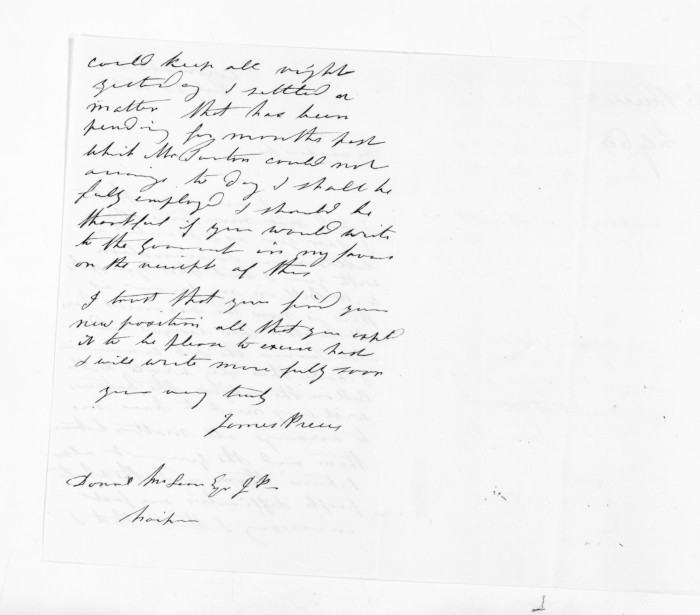 could keep all right
yesterday I settled a
matter that has been
pending for months past
which Mr could not
arrange to day I shall be
fully employd I should be
thankful if you would write
to the in my favour
on the receipt of this
I trust that you find your
new position all that you
it to be please to excuse hast
I will write more fully soon
your very truly
James Preece
Donald McLean Esqr J P